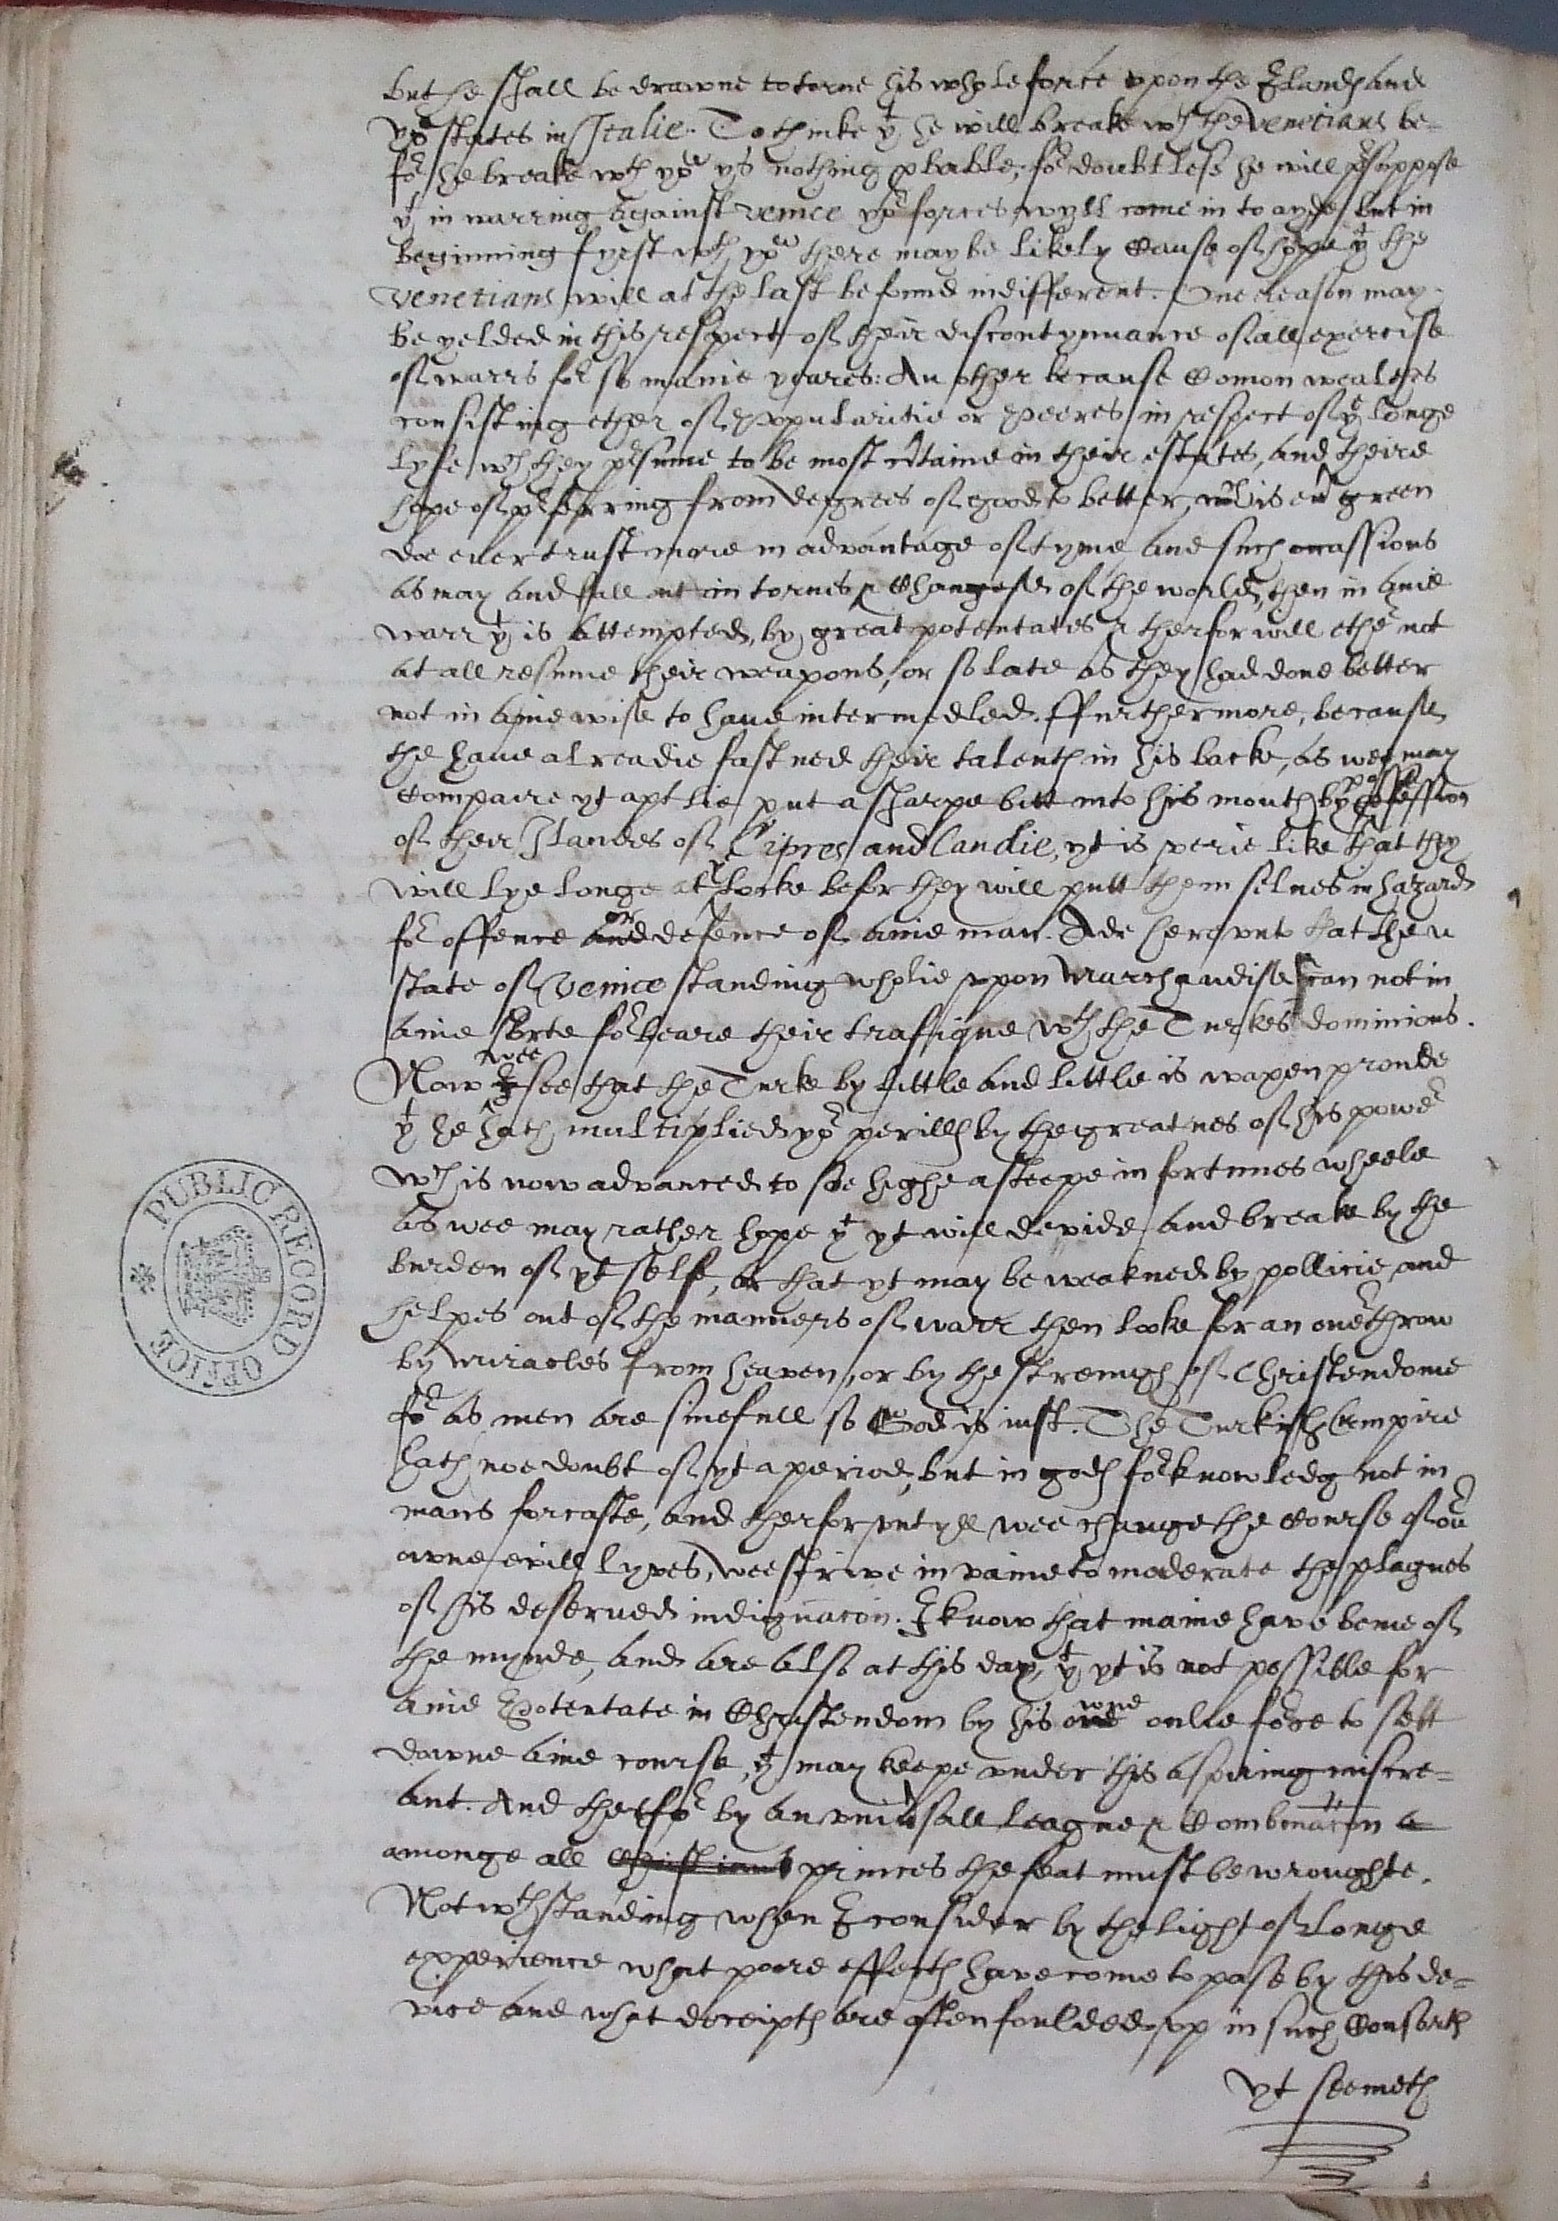 but he shall be drawne to torne his whole force vpon the Ilands and
yor states in Italie. To thinke yt he will breake wth the Venetians be=
for he breake wth you ys nothing pbable, for doubtless he will psuppose
yt in warring against Venice yor forces wyll come in to ayde, but in
beginning fyrst wth you there may be likely cause of hope yt the
Venetians will at the last be found indifferent. One reason may
be yelded in this respect of their discontynuance of all exercise
of warrs for so manie yeares: An other because Comon wealthes
consisting ether of Popularitie or Peeres in respect of ye longe
lyfe wch they psume to be most ctaine in their estates, and theire
hope of pferring from degrees of good to better, wch is eu green
doe euer trust more in advantage of tyme and such occassions
as may and fall out in tornes & Changese of the world, then in anie
warr yt is attempted, by great potentates & therfor will ether not
at all resume their weapons, or so late as they had done better
not in anie wise to haue intermedled. ffurthermore, because
the haue alreadie fastned their talenth in his backe, as wee may
compaire yt aptlie put a sharpe bitt into his mouth by possession
of their Ilandes of Cipres and Candie, yt is verie like that they
will lye longe at ye locke befor they will putt them selues in hazard
for offence and or defence of anie man. Ade hervnto that the
state of Venice standing wholie vpon Marchandise can not in
anie sorte forbeare their traffique wth the Turkes dominions.
Now wee I see that the Turke by little and little is waxen proude
yt he hath multiplied yor perills by the greatnes of his power
wch is now advanced to soe highe a steepe in fortunes wheele
as wee may rather hope yt yt will devide and breake by the
burden of yt self, or that yt may be weakned by pollicie and
helpes out of the manners of warr then looke for an ouerthrow
by miracles from heaven, or by the strength of Christendome
for as men are sinefull so God is iust. The Turkish Empire
hath noe doubt of yt a period, but in gods forknowledg not in
mans forcaste, and therfor vntyll wee change the course of our
owne evill lyves, wee strive in vaine to moderate the plagues
of his deserved indignacon. I know that manie have beine of
the mynde, and are also at this day, yt yt is not possible for
anie Potentate in Christendom by his owne onlie force to sett
downe anie course, yt may keepe vnder this aspiring miscre=
ant. And therfor by an vniusall league & Combinacon
amonge all Christians princes the feat must be wroughte.
Notwthstanding when I consider by the light of longe
experience what poore effects have come to pase by this de=
vice and what deceipts are often foulded vp in such Consorts
yt seemeth
PUBLIC RECORD OFFICE